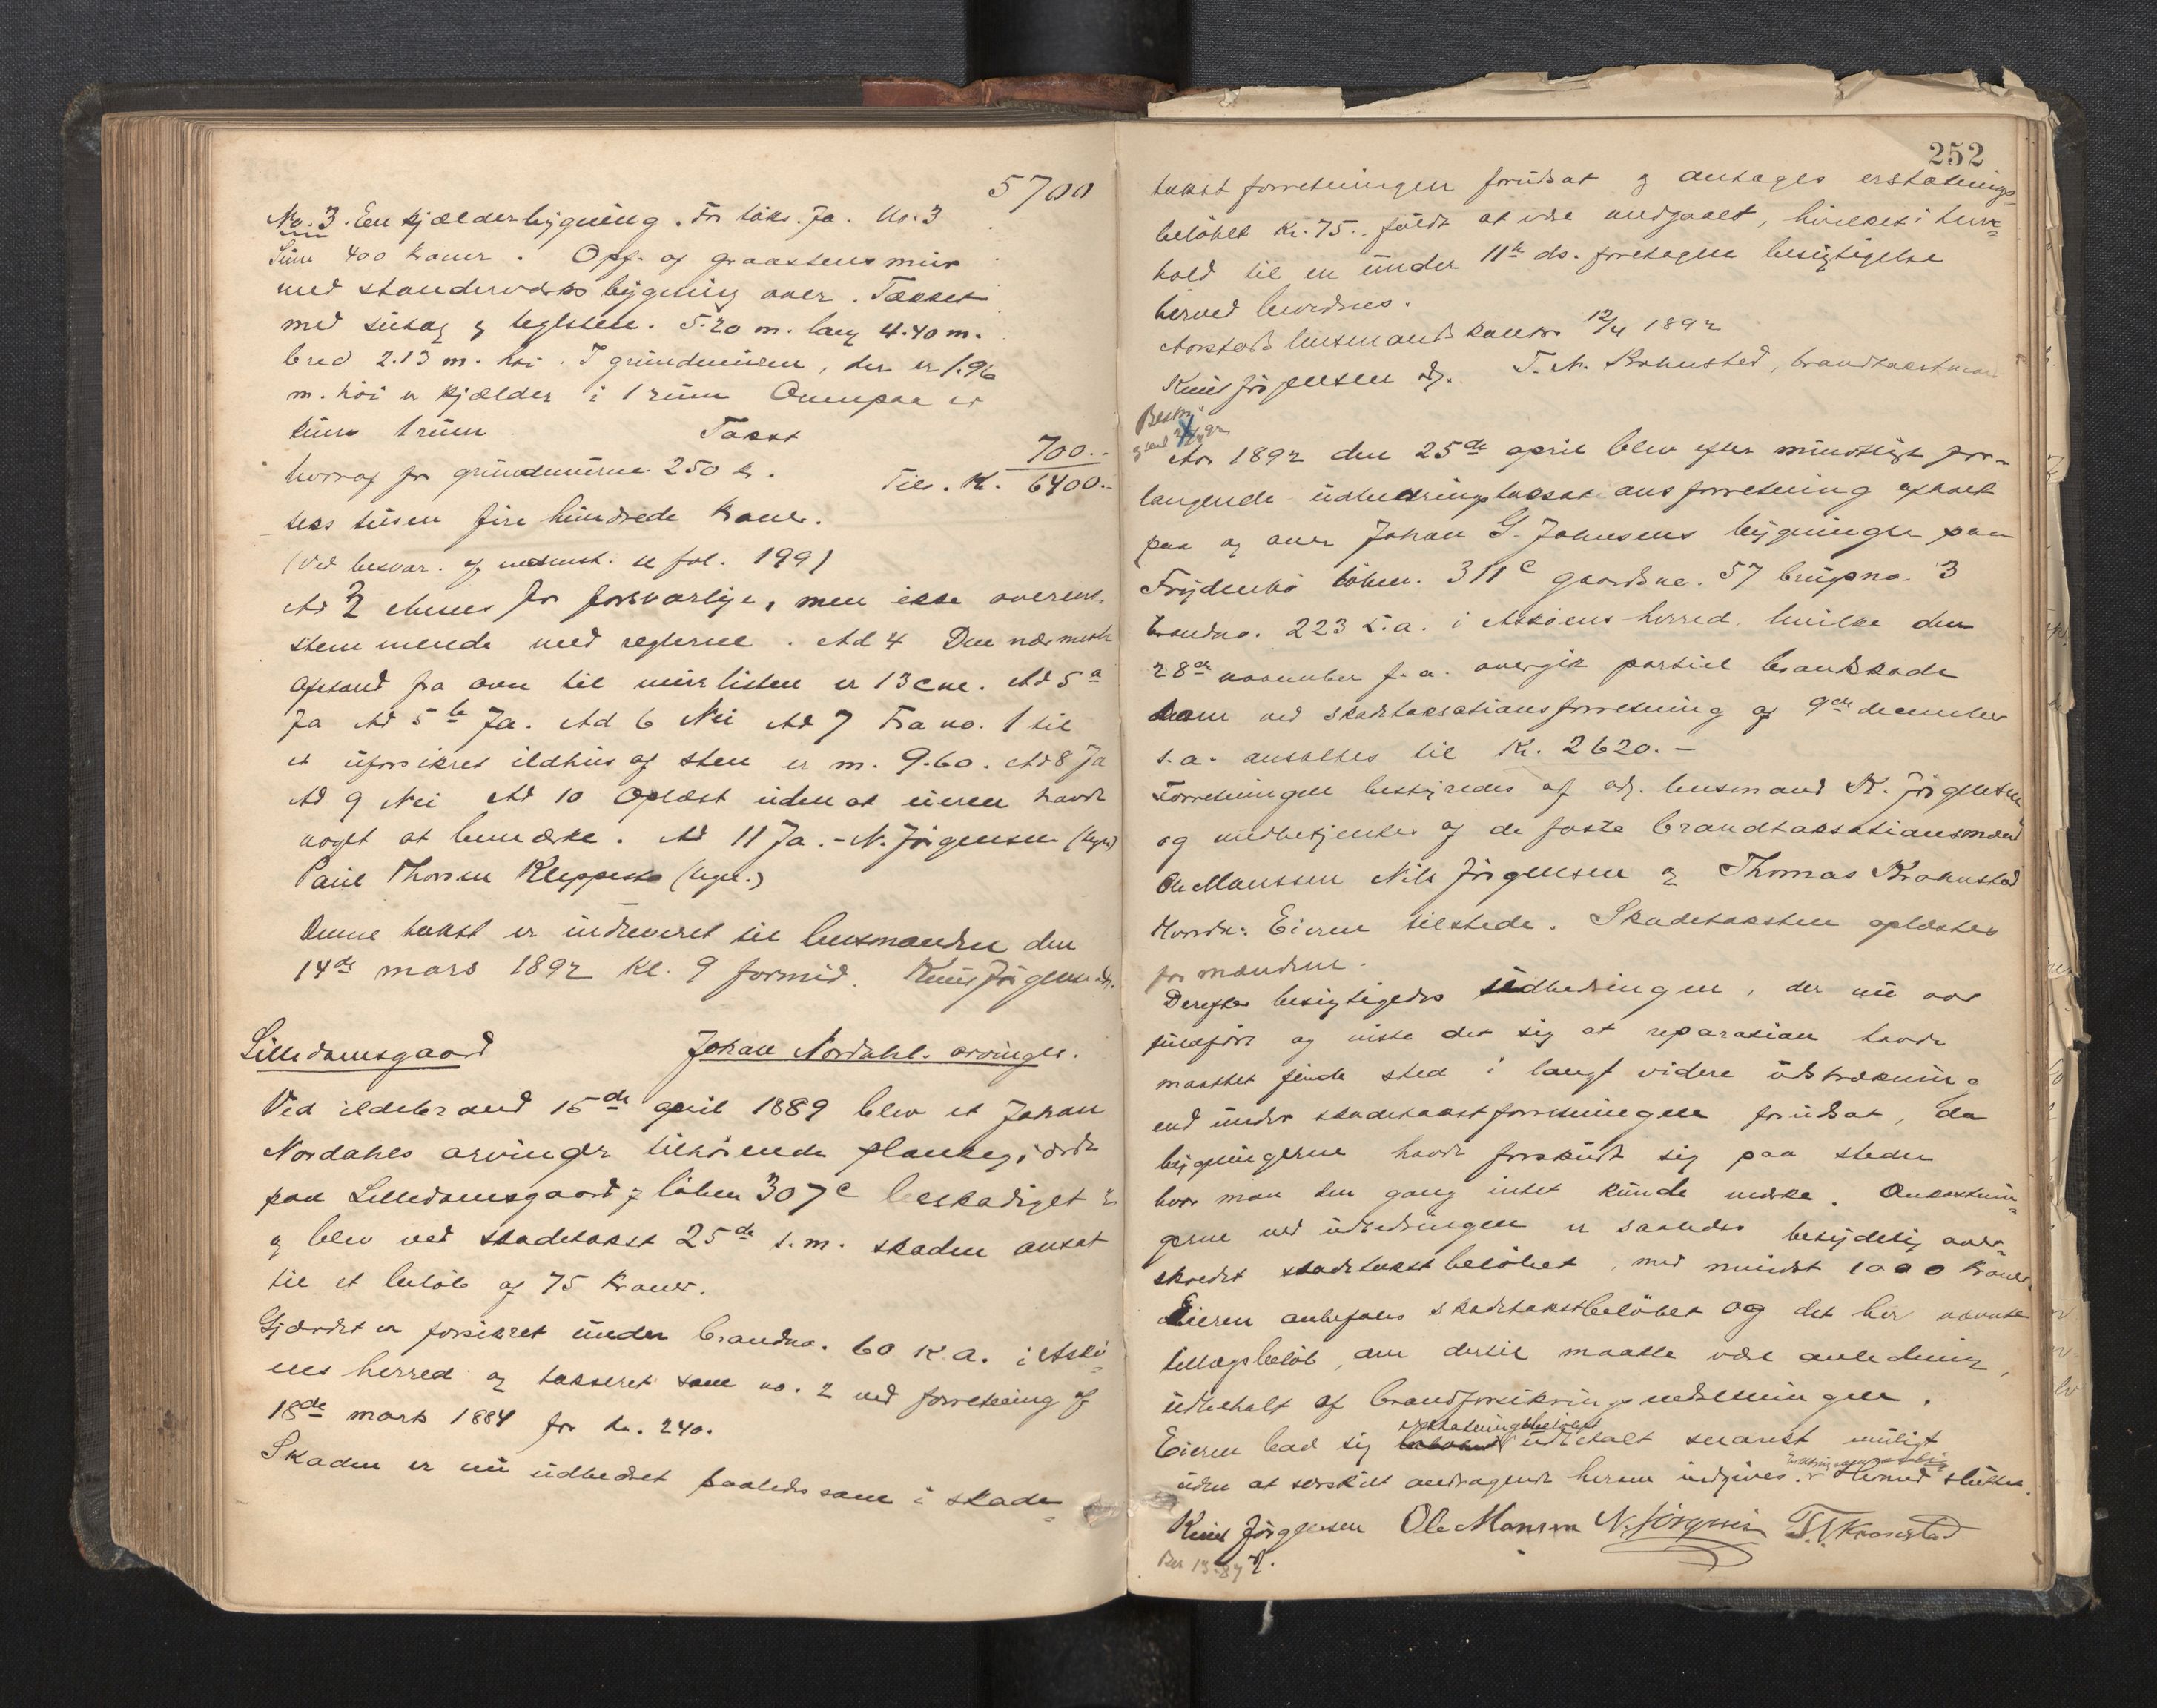 5700
No. 3. En kjælderbygning. Før taks. fo. No. 3
Sum 400 kroner. Opf. af graastensmur
med standerværks bygning over. Tækket
med sutag og teglsten. 5.20 m. lang 4.40 m.
bred 2.13 m. høi. I grundmuren, der er 1.96
m. høi er kjælder i 1 rum Ovenpaa er
1 rum Takst 700.-
hvoraf for grundmurene 250 kr. Tils. Kr. 6400.-
seks tusen fire hundrede kroner.
(Ved besvar. af se fol. 199)
Ad 3 Ansees for forsvarlige, men ikke overens-
stemmende med reglerne. Ad 4 Den nærmeste
afstand fra ovn til murlisten er 13 cm. Ad 5 a
Ja Ad 5 b Ja. Ad 6 Nei Ad 7 Fra no. 1 til
et uforsikret ildhus af sten er m. 9.60. Ad 8 Ja
Ad 9 Nei Ad 10 Oplæst uden at eieren havde
noget at bemærke. Ad 11 Ja. - N. Jørgensen (sign)
Paul Thorsen Kleppestø (sign.)
Denne takst er indleveret til lensmanden den
14de mars 1892 kl. 9 formid. Knut Jørgensen
Lilledamsgaard Johan Nordahl. arvinger.
Ved ildebrand 15de april 1889 blev et Johan
Nordahls arvinger tilhørende plankegjærde
paa Lilledamsgaard løben 307c beskadiget
og blev ved skadetakst 25de s.m. skaden ansat
til et beløb af 75 kroner.
Gjærdet er forsikret under brandno. 60 K.a. i Askø-
ens herred og takseret som no. 2 ved forretning af
18de marts 1884 for kr. 240.
Skaden er nu udbedret saaledes som i skade-
252
takst forretningen forudsat og antages erstatnings-
beløbet kr. 75.. fuldt at være medgaaet, hvilket i hen-
hold til en under 11te ds. foretagen besigtigelse
herved bevidnes.
Askøens lensmandskontor 12/4 1892
Knut Jørgensen T. N. Krohnsted, brandtakstmand
Aar 1892 den 25de april blev efter mundtligt for-
langende udbedringstaksationsforretning afholdt
paa og over Johan G. Johnsens bygninger paa
Frydenbø løben. 311c gaardsno. 57 brugsno. 3
brandno. 223 L.a. i Askøens herred, hvilke den
28de november f.a. overgik partiel brandskade
som ved skadetaksationsforretning af 9de december
s.a. ansattes til kr. 2620.-
Forretningen bestyredes af adj. lensmand K. Jørgensen
og medbetjentes af de faste brandtaksationsmænd
Ole Manssen Nils Jørgensen og Thomas Krohnstad
Eieren tilstede. Skadetaksten oplæstes
for mændene.
Derefter besigtigedes udbedringen, der nu var
fuldført og viste det sig at reparation havde
maattet finde sted i langt videre udstrækning
end under skadetakstforretningen forudsat, da
bygningerne havde forskudt sig paa steder
hvor man den gang intet kunde mærke. Omkostnin-
gerne ved udbedringen er saaledes betydelig over-
skredet skadetakstbeløbet, med mindst 1000 kroner.
Eieren anbefales skadetakstbeløbet og det her nævnte
tillægsbeløb, om dertil maatte være anledning,
udbetalt af brandforsikringsindretningen.
erstatningsbeløbet
Eieren bad sig udbetalt snarest muligt
uden at særskilt andragende herom indgives. Hermed sluttet.
Knut Jørgensen Ole Mansen N. Jørgensen T. N. Kronstad